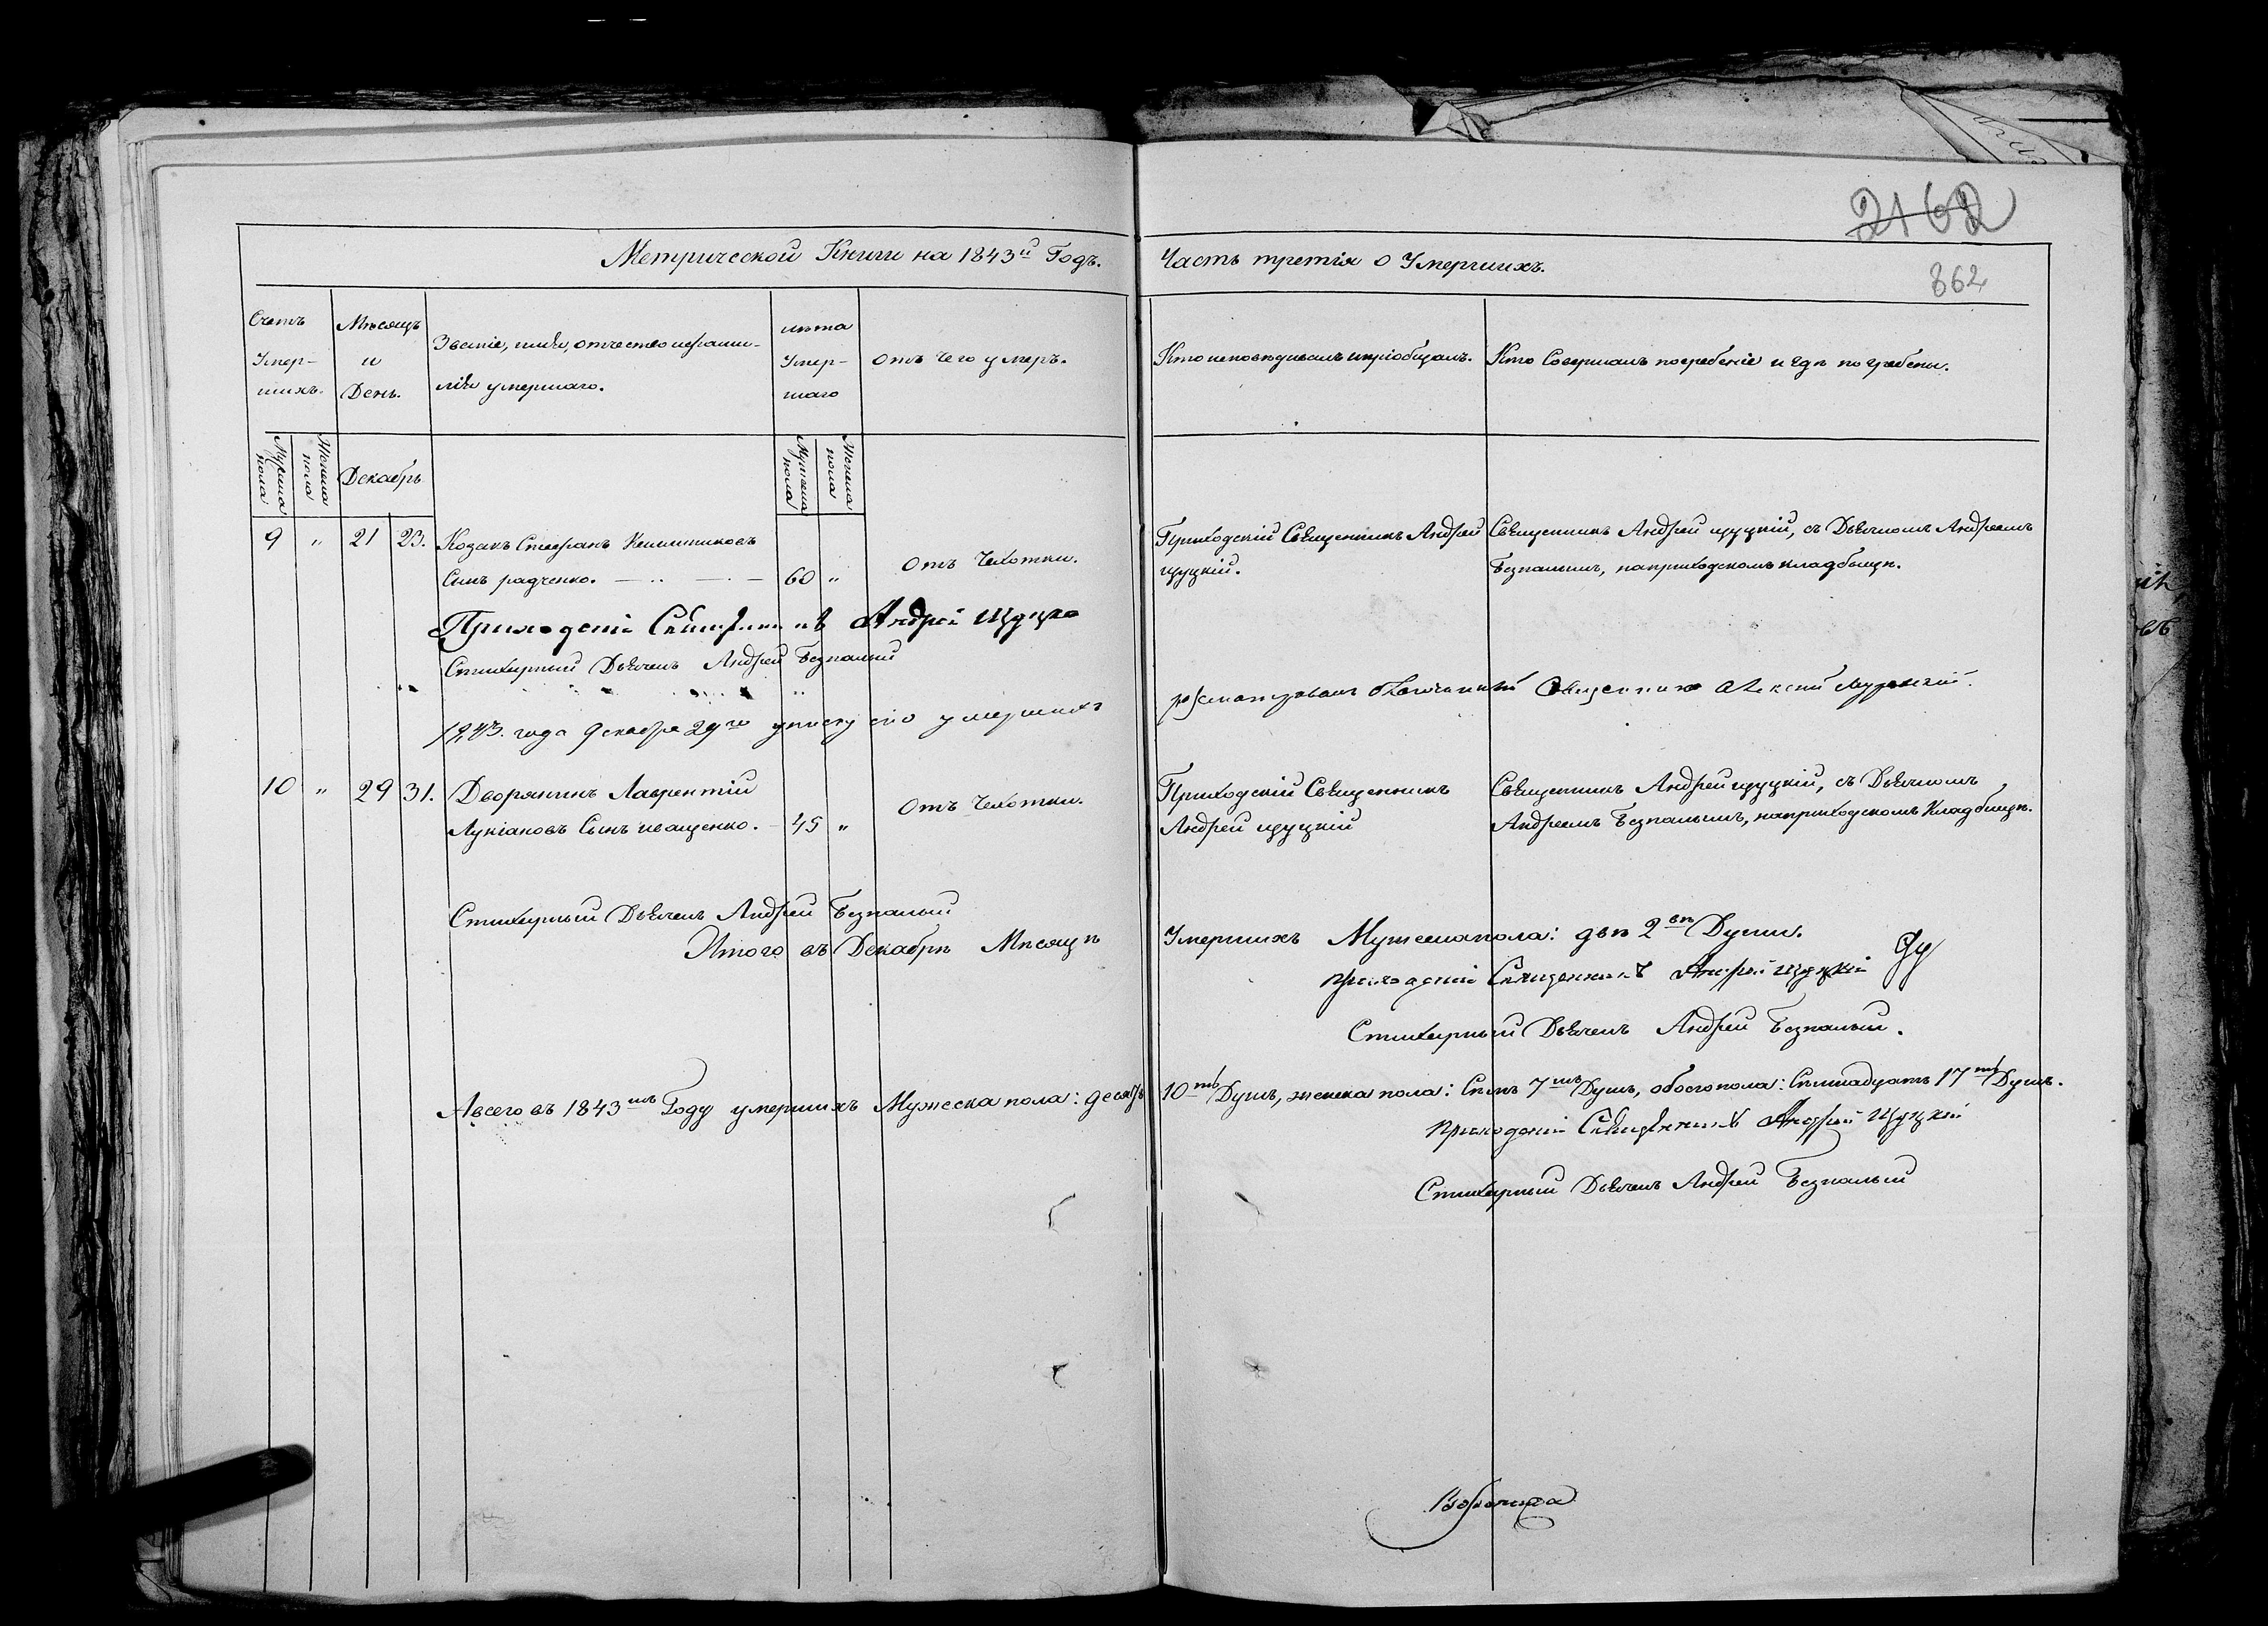 2162
862
Метрической Книги на 1843й Годъ.
Часть третія о Умершихъ.
Счетъ Умер-шихъ.
Мѣсяцъ и День.
Званіе, имя, отчество и фами-
лія умершаго.
лѣта Умер-шаго
отъ чего умеръ.
Кто исповѣдывалъ и пріобщалъ.
Кто Совершалъ погребеніе и гдѣ погребены.
Мужеска пола
Женска пола
Декабрь
Мужеска пола
Женска пола
9 " 21 23. Козакъ Стефанъ
Сынъ радченко. 60 " отъ Чахотки.
Приходскій Священникъ Андрей
цуцкій.
Священникъ Андрей цуцкій, съ Дьячкомъ Андреемъ
Безпалымъ, на приходскомъ кладбищѣ.
Приходскій Священникъ Андрей
Стихарный Дьячекъ Андрей Безпалый
1843. года декабря 29го умершихъ
Священникъ Алексій
10 " 29 31. Дворянинъ Лаврентій
Лукіановъ Сынъ иващенко. 45 " Отъ Чахотки.
Приходскій Священникъ
Андрей цуцкій
Священникъ Андрей цуцкій, съ Дьячкомъ
Андреемъ Безпалымъ, на приходскомъ Кладбищѣ.
Стихарный Дьячекъ Андрей Безпалый
Итого въ Декабрѣ Мѣсяцѣ Умершихъ Мужеска пола: двѣ 2вѣ Души.
Приходскій Священникъ Андрей Цуцкій
Стихарный Дьячекъ Андрей Безпалый.
А всего въ 1843мъ Году умершихъ Мужеска пола: десять 10ть Душъ, женска пола: Семь 7мь Душъ, обоего пола: Семнадцать 17ть Душъ.
Приходскій Священникъ Андрей Цуцкій
Стихарный Дьячекъ Андрей Безпалый